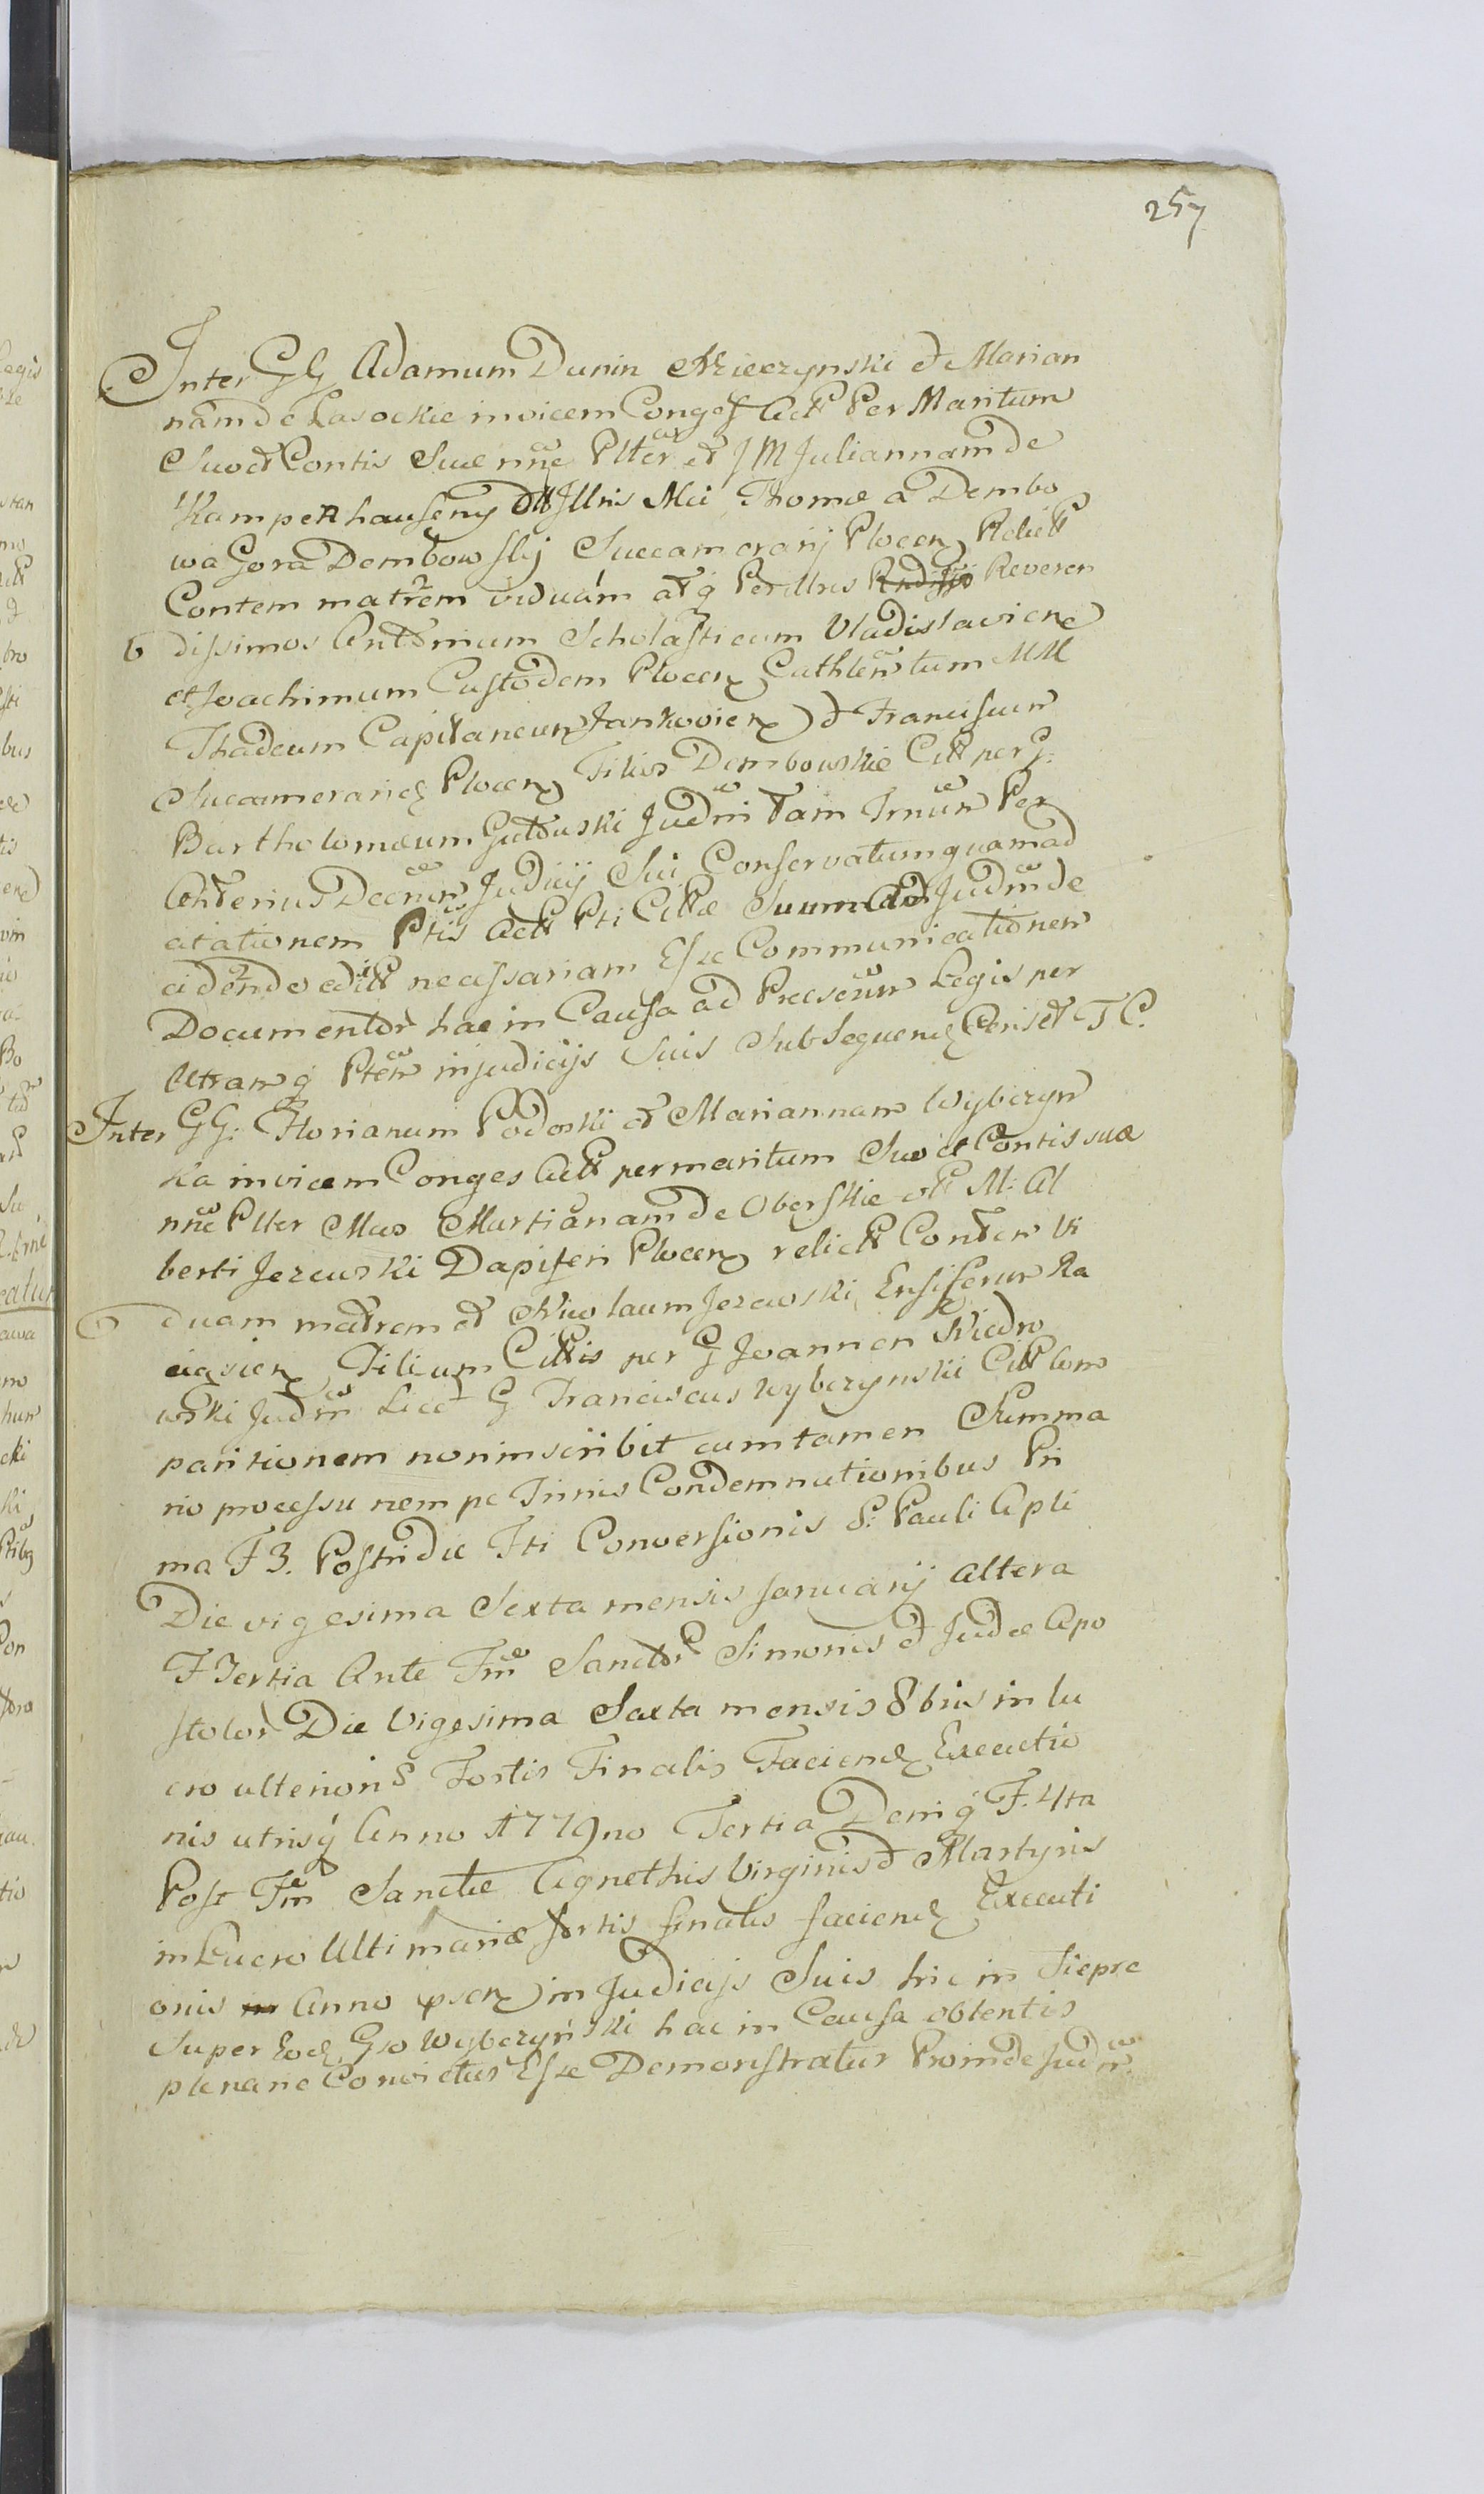 257
Inter GG Adamum Dunin Mieczynski et Marian
nam de Lasockie invicem Conges Actt Per Maritum
Suo et Contis Suae nne Ptter et JM Juliannam de
Kampenhauseny olt Jllris Mci Thomae a Dembo
wa Gora Dembowskij Succamerarij Plocen Relictt
Contem matrem viduam atq Perillres Reveren
6 dissimos Antonium Scholasticum Vladislavien
et Joachimum Custodem Plocen Cathlem tum MM
Thadeum Capitaneum Jankovien et Franciscum
Succamerarid Plocen Filios Dembowskie Citt per G.
Bartholomaeum Gutowski Judm tam Trnum Per
Anterius Decrum Judicij Sui Conservatum quam ad
citationem Ptis Actt Pti Cittae Suum Ad Judm de
cidendo editt necessariam Esse Communicationem
Documentor hac in Causa ad Prescrum Legis per
Utramq Ptem in judicijs Suis Subsequend Censet T C.
Inter GG: Florianum Podoski et Mariannam Wybczyn
ka invicem Conges Actt per maritum Suo et Contis suae
nne Ptter Mas Martianam de Oberskie olt M. Al
berti Jezewski Dapiferi Plocen relictt Contem Vi
duam matrem et Nicolaum Jezewski Ensiferum Ra
ciąsien Filium Cittis per G Joannem Niedro
wski Judm Licet G Franciscus Wybczynski Citt Com
paritionem non inscribit cum tamen Summa
rio processu nempe Trinis Condemnationibus Pri
ma F 3. Postridie Fti Conversionis S. Pauli Apli
Die vigesima Sexta mensis Januarij altera
F Tertia Ante Fm Sanctor Simonis et Judae Apo
stolor Die Vigesima Sexta mensis 8bris in lu
cro ulterioris Fortis Finalis Faciend Executio
nis utrisq Anno 1779no Tertia Deniq F. 4ta
Post Fm Sanctae Agnethis Virginis et Martyris
in Lucro Ultimariae fortis finalis faciend Executi
onis Anno psen in Judicijs Suis hic in Sieprc
Super Eod Gso Wybczynski hac in Causa obtentis
plenarie Convictus Esse Demonstratur Proinde Judm